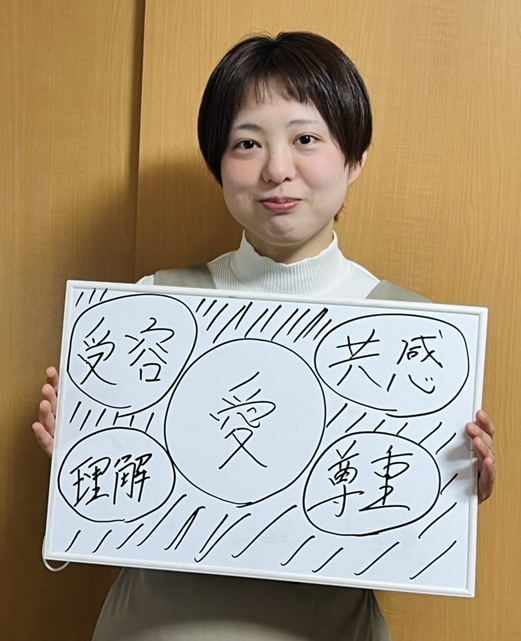 受容
共感
愛
理解
尊重